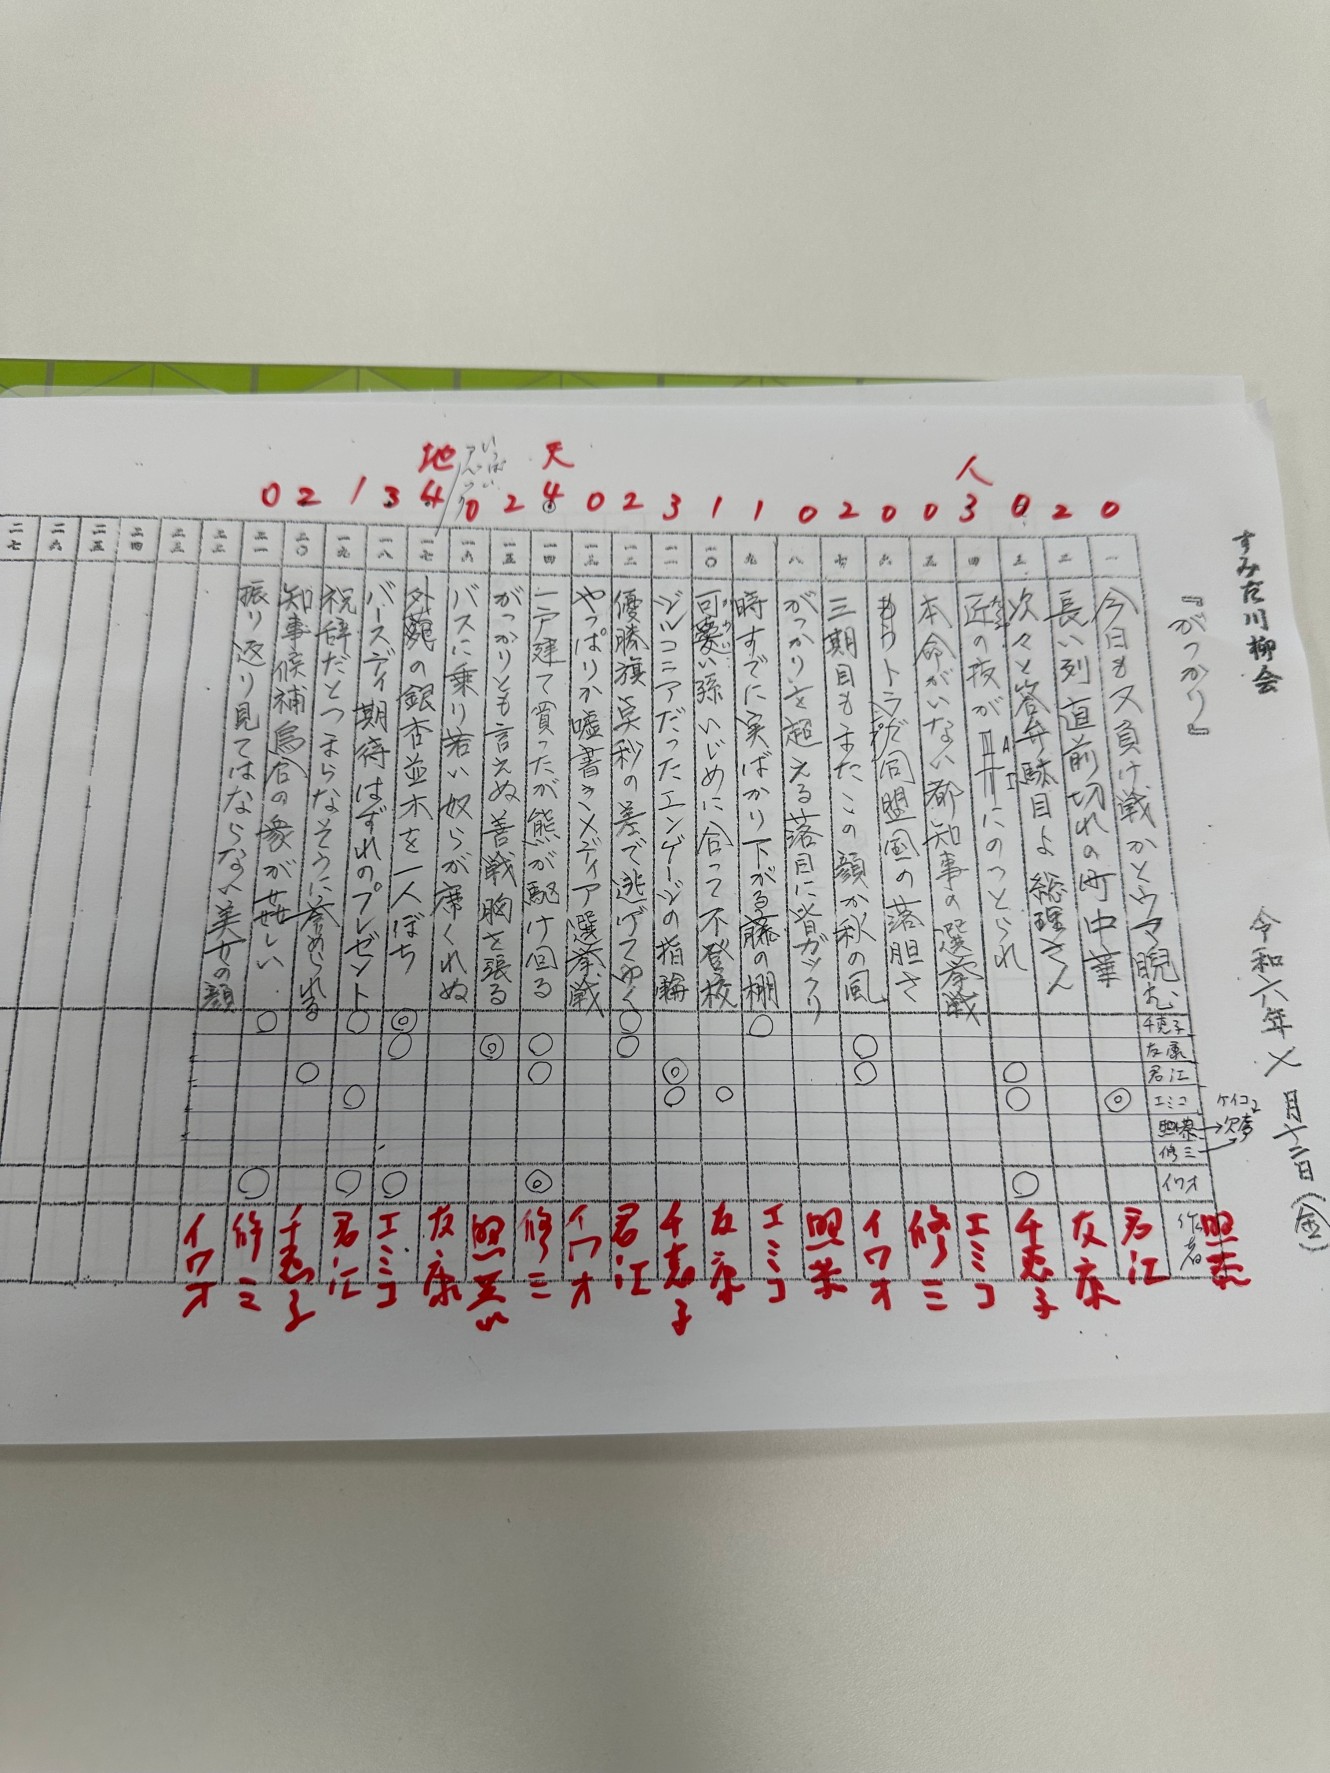 すみだ川柳会
『がっかり』
令和六年 七月十二日(金)
一 今日も又負け戦かとウマ睨む
二 長い列直前切れの町中華
三 次々と答弁駄目よ総理さん
四 匠の技がAIにのっとられ
五 本命がいない都知事の選挙戦
六 もうトラだ同盟国の落胆さ
七 三期目もまたこの顔か秋の風
八 がっかりを超える落目に皆ガックリ
九 時すでに実ばかり下がる藤の棚
一〇 可愛い孫いじめに合って不登校
一一 ジルコニアだったエンゲージの指輪
一二 優勝旗寅秒の差で逃げてゆく
一三 やっぱりか嘘書きメディア選挙戦
一四 一戸建て買ったが熊が駆け回る
一五 がっかりとも言えぬ善戦胸を張る
一六 バスに乗り若い奴らが席くれぬ
一七 外苑の銀杏並木を一人ぼち
一八 バースディ期待はずれのプレゼント
一九 祝辞だとつまらなそうに
二〇 知事候補烏合の衆が
二一 振り返り見てはならない美女の顔
二二
二三
二四
二五
二六
二七
人 天 地
0 2 0 3 0 0 2 0 1 1 3 2 0 4 2 0 4 3 1 2 0
千恵子
友康
君江
エミコ
照葉
修三
イワオ
ケイコ
欠席
作者
照葉
君江
友康
千恵子
エミコ
修三
イワオ
照葉
エミコ
友康
千恵子
君江
イワオ
修三
照葉
友康
エミコ
君江
千恵子
修三
イワオ